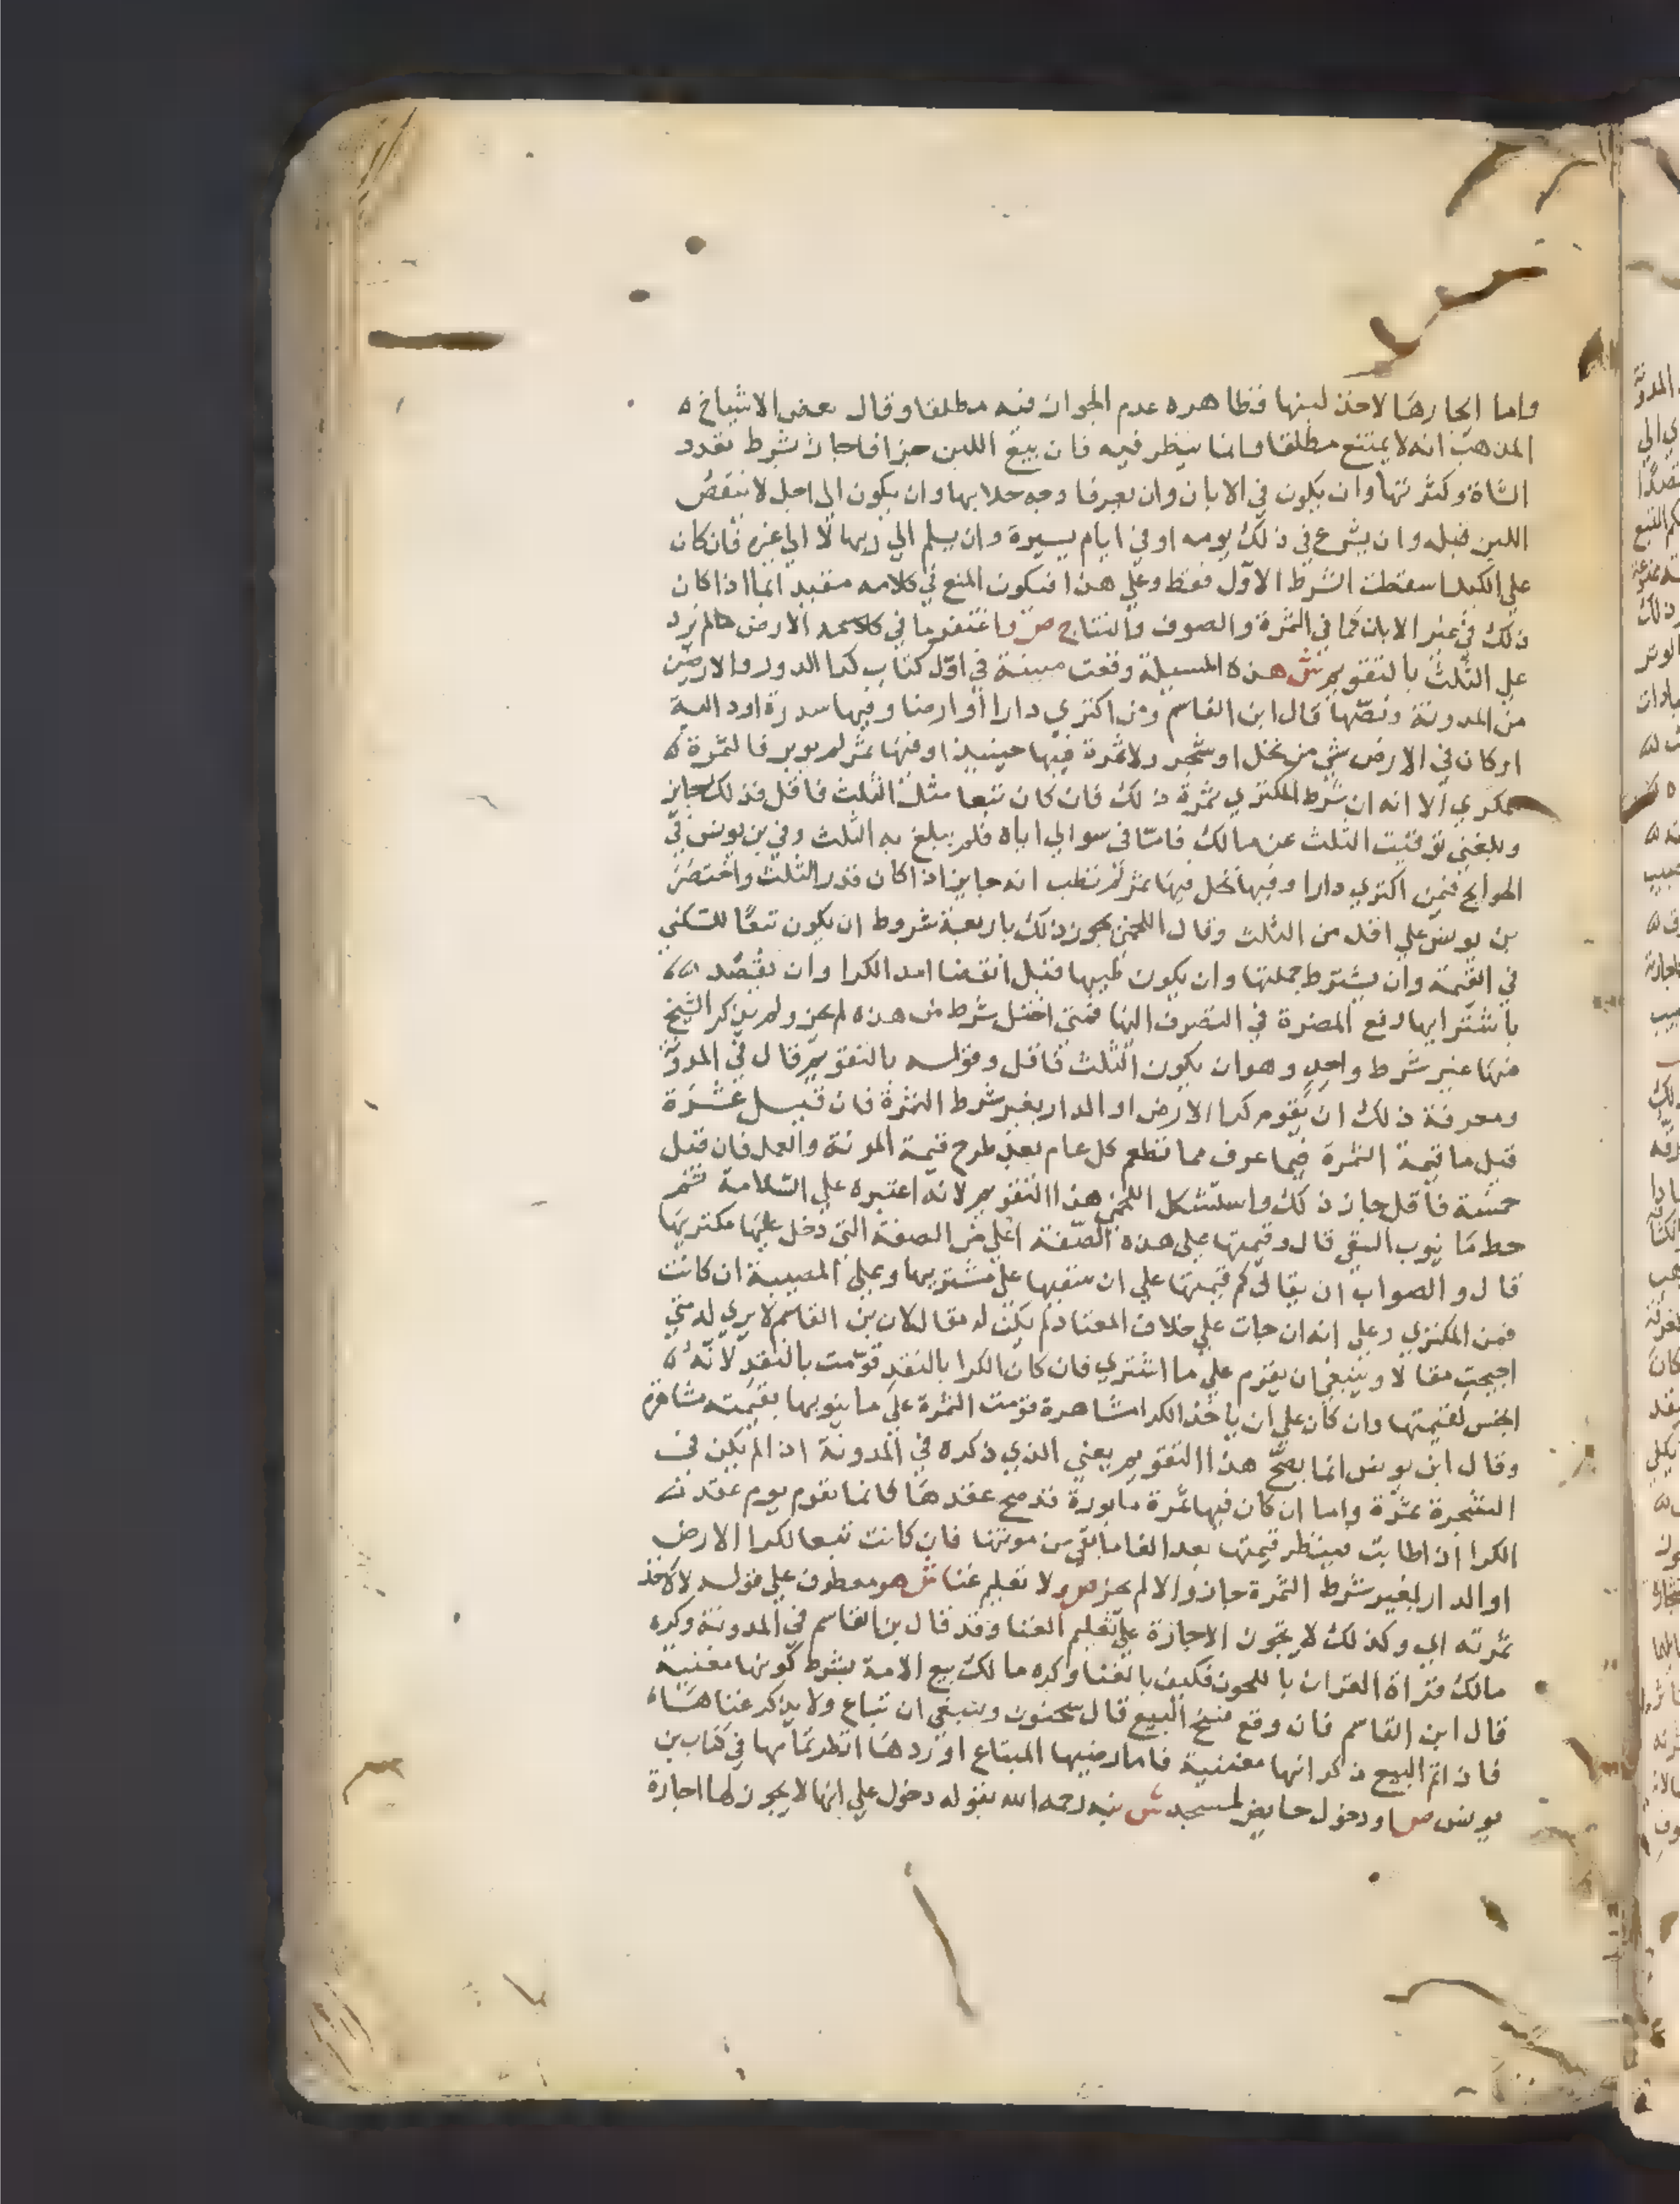 واما ايجارها لاخذ لبنها فظاهره عدم الجواز فيه مطلقا وقال بعض الاشياخ ه
المذهب انه لا يمتنع مطلقا وانما ينظر فيه فان بيع اللبن جزافا جاز بشرط تعدد
الشاة وكثرتها وان يكون في الابان وان يعرفا وجه حلابها وان يكون الى اجل لا ينقص
اللبن قبله وان يشرع في ذلك يومه او في ايام يسيرة وان يسلم الي ربها لا الي غيره فان كان
علي الكيل سقطت الشرط الاول فقط وعلي هذا فيكون المنع في كلامه مقيد انما اذا كان
ذلك في غير الابان كما في الثمرة والصوف والنتاج ص واغتفر ما في الارض مالم يزد
علي الثلث بالتقويم ش هذه المسيلة وقعت مبينة في اول كتاب كرا الدور والارضين
من المدونة ونصها قال ابن القاسم ومن اكتري دارا او ارضا وفيها سدرة او دالية
او كان في الارض شي من نخل او شجر ولا ثمرة فيها حينيذ او فيها ثمر لم يوبر فالثمرة ه
للمكري الا انه ان شرط المكتري ثمرة ذلك فان كان تبعا مثل الثلث فاقل فذلك جايز
وبلغني توقيت الثلث عن مالك فاما في سوالي اياه فلم يبلغ به الثلث وفي بن يونس في
الجوايح فيمن اكتري دارا وفيها نخل فيها ثمر لم تطب انه جايز اذا كان قدر الثلث واختصر
بن يونس علي اقل من الثلث وقال اللخمي يجوز ذلك باربعة شروط ان يكون تبعا للسكني
في القيمة وان يشترط جملتها وان يكون طيبها قبل انقضا امد الكرا وان يقصد
باشترايها رفع المضرة في التصرف اليها فمتي اختل شرط من هذه لم يجز ولم يذكر الشيخ
منها غير شرط واحد وهو ان يكون الثلث فاقل وقوله بالتقويم قال في المدونة
ومعرفة ذلك ان يقوم كرا الارض او الدار بغير شرط الثمرة فان قيل عشرة
قيل ما قيمة الثمرة فيما عرف مما تطعم كل عام بعد طرح قيمة المونة والعمل فان قيل
خمسة فاقل جاز ذلك واستشكل اللخمي هذا التقويم لانه اعتبره علي السلامة ثم
حط ما ينوب السقي قال وقيمتها علي هذه الصفة اغلي من الصفة التي دخل عليها مكتريها
قال والصواب ان يقال كم قيمتها علي ان سقيها علي مشتريها وعلي المصيبة ان كانت
فمن المكتري وعلي انه ان جات علي خلاف المعتاد لم يكن له مقال لان بن القاسم لا يري له متي
اجيحت مقالا وينبغي ان يقوم علي ما اشتري فان كان الكرا بالنقد قومت بالنقد لانه ه
ابخس لقيمتها وان كان علي ان ياخذ الكرا مشاهرة قومت الثمرة علي ما ينوبها بقيمته مشاهرة
وقال ابن يونس انما يصح هذا التقويم يعني الذي ذكره في المدونة اذا لم يكن في
الشجرة ثمرة واما ان كان فيها ثمرة مابورة قد صح عقدها فانما تقوم يوم عقد
الكرا ان اطابت فينظر قيمتها بعد الغا ما بقي من مونتها فان كانت تبعا لكرا الارض
او الدار بغير شرط الثمرة جاز والا لم يجز ص ولا تعليم غنا ش هو معطوف علي قوله لا لاخذ
ثمرته اي وكذلك لا يجوز الاجارة علي تعليم الغنا وقد قال بن القاسم في المدونة وكره
مالك قراة القران بالالحون فكيف بالغنا وكره مالك بيع الامة بشرط كونها مغنية
قال ابن القاسم فان وقع فسخ البيع قال سحنون وينبغي ان تباع ولا يذكر غناها
فاذا تم البيع ذكر انها مغنية فاما رضيها المبتاع او ردها انظر تمامها في كتاب بن
يونس ص او دخول حايض لمسجد ش نبه رحمه الله بقوله دخول علي انها لا يجوز لها اجارة